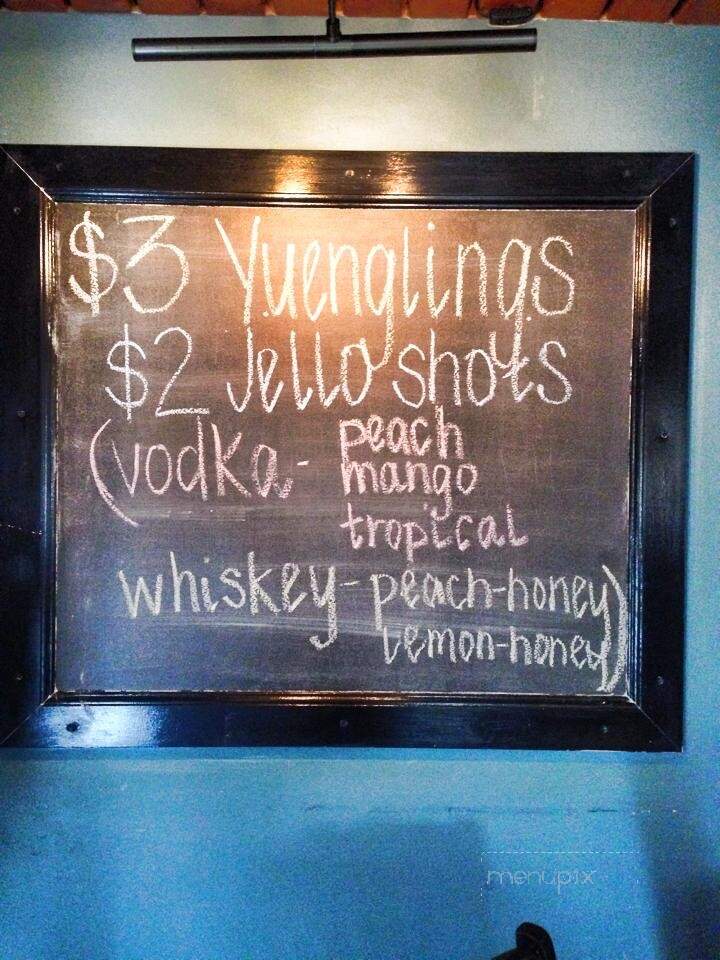 $3 Yuenglings
$2 Jello shots
(vodka- peach
mango
tropical
whiskey- peach-honey
lemon-honey)
menupix